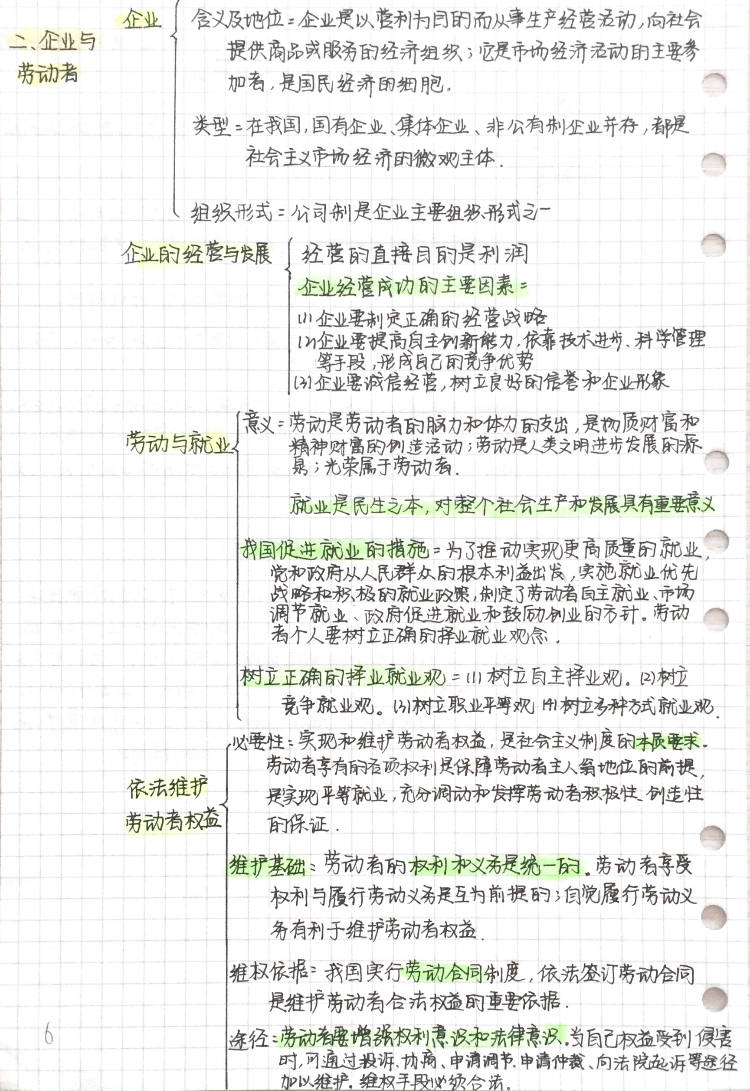 二、企业与
劳动者
企业
含义及地位=企业是以营利为目的而从事生产经营活动,向社会
提供商品或服务的经济组织;它是市场经济活动的主要参
加者,是国民经济的细胞.
类型=在我国,国有企业、集体企业、非公有制企业并存,都是
社会主义市场经济的微观主体.
组织形式=公司制是企业主要组织形式之一
企业的经营与发展
经营的直接目的是利润
企业经营成功的主要因素=
(1)企业要制定正确的经营战略
(2)企业要提高自主创新能力,依靠技术进步、科学管理
等手段,形成自己的竞争优势
(3)企业要诚信经营,树立良好的信誉和企业形象
劳动与就业
意义=劳动是劳动者的脑力和体力的支出,是物质财富和
精神财富的创造活动;劳动是人类文明进步发展的源
泉;光荣属于劳动者.
就业是民生之本,对整个社会生产和发展具有重要意义
我国促进就业的措施=为了推动实现更高质量的就业,
党和政府从人民群众的根本利益出发,实施就业优先
战略和积极的就业政策,制定了劳动者自主就业、市场
调节就业、政府促进就业和鼓励创业的方针。劳动
者个人要树立正确的择业就业观念.
树立正确的择业就业观=(1)树立自主择业观。(2)树立
竞争就业观。(3)树立职业平等观 (4)树立多种方式就业观.
依法维护
劳动者权益
必要性:实现和维护劳动者权益,是社会主义制度的本质要求.
劳动者享有的各项权利是保障劳动者主人翁地位的前提,
是实现平等就业,充分调动和发挥劳动者积极性、创造性
的保证.
维护基础:劳动者的权利和义务是统一的。劳动者享受
权利与履行劳动义务是互为前提的;自觉履行劳动义
务有利于维护劳动者权益.
维权依据=我国实行劳动合同制度,依法签订劳动合同
是维护劳动者合法权益的重要依据.
途径=劳动者要增强权利意识和法律意识。当自己权益受到侵害
时,可通过投诉、协商、申请调节、申请仲裁、向法院起诉等途径
加以维护.维权手段必须合法.
6